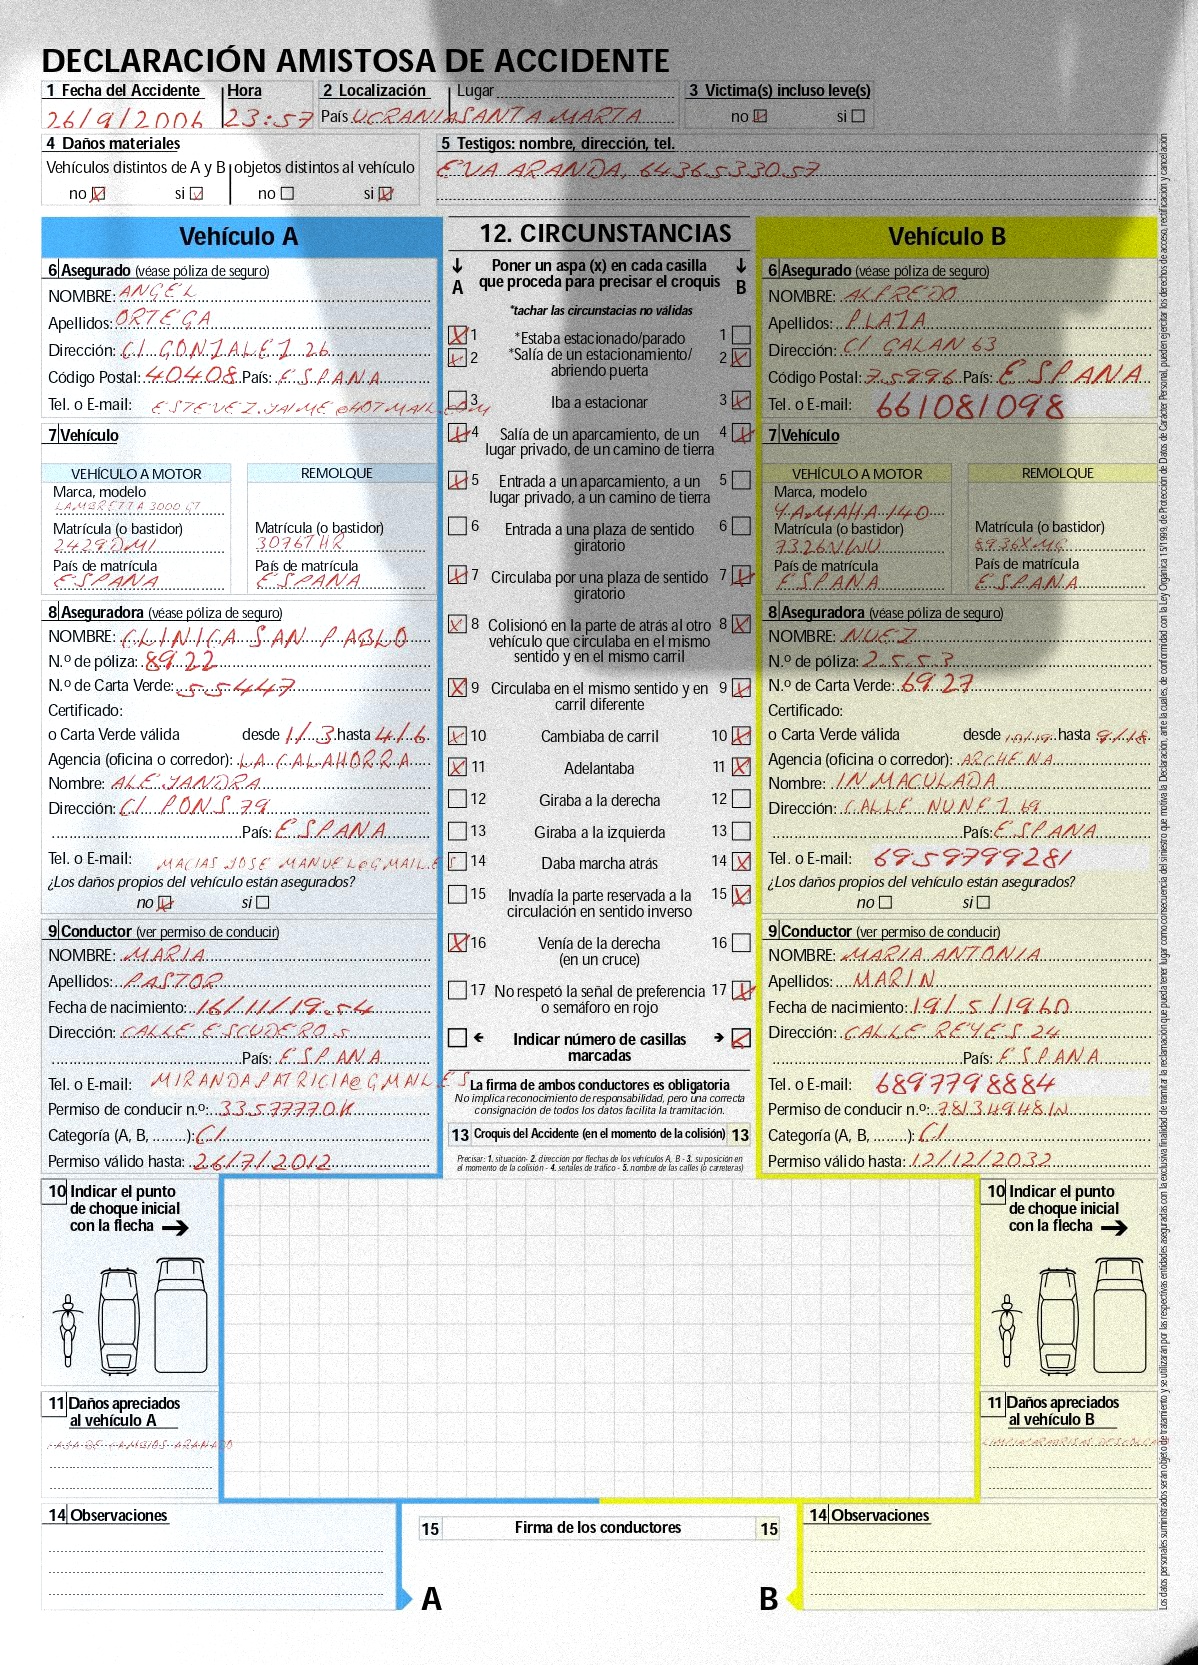 DECLARACIÓN AMISTOSA DE ACCIDENTE
1 Fecha del Accidente Hora 2 Localización Lugar 3 Victima(s) incluso leve(s)
26/9/2006 23:57 País UCRANIA SANTA MARTA no si
4 Daños materiales 5 Testigos: nombre, dirección, tel.
Vehículos distintos de A y B objetos distintos al vehículo EVA ARANDA, 6436533057
no si no si
Vehículo A
6 Asegurado (véase póliza de seguro)
NOMBRE: ANGEL
Apellidos: ORTEGA
Dirección: C/ GONZALEZ 26
Código Postal: 40408 País: ESPANA
Tel. o E-mail: ESTEVEZ.JAIME@HOTMAIL.COM
7 Vehículo
VEHÍCULO A MOTOR REMOLQUE
Marca, modelo
LAMBRETTA 3000 GT
Matrícula (o bastidor) Matrícula (o bastidor)
2429DMI 3076THR
País de matrícula País de matrícula
ESPANA ESPANA
8 Aseguradora (véase póliza de seguro)
NOMBRE: CLINICA SAN PABLO
N.º de póliza: 8922
N.º de Carta Verde: 55447
Certificado:
o Carta Verde válida desde 1/3 hasta 4/6
Agencia (oficina o corredor): LA CALAHORRA
Nombre: ALEJANDRA
Dirección: C/ PONS 79
País: ESPANA
Tel. o E-mail: MACIAS JOSE MANUEL@GMAIL.ES
¿Los daños propios del vehículo están asegurados?
no si
9 Conductor (ver permiso de conducir)
NOMBRE: MARIA
Apellidos: PASTOR
Fecha de nacimiento: 16/11/1954
Dirección: CALLE ESCUDERO 5
País: ESPANA
Tel. o E-mail: MIRANDAPATRICIA@GMAIL.ES
Permiso de conducir n.º: 33577770K
Categoría (A, B, ........): C1
Permiso válido hasta: 26/7/2012
12. CIRCUNSTANCIAS
Poner un aspa (x) en cada casilla
A que proceda para precisar el croquis B
*tachar las circunstacias no válidas
1 *Estaba estacionado/parado 1
2 *Salía de un estacionamiento/ 2
abriendo puerta
3 Iba a estacionar 3
4 Salía de un aparcamiento, de un 4
lugar privado, de un camino de tierra
5 Entrada a un aparcamiento, a un 5
lugar privado, a un camino de tierra
6 Entrada a una plaza de sentido 6
giratorio
7 Circulaba por una plaza de sentido 7
giratorio
8 Colisionó en la parte de atrás al otro 8
vehículo que circulaba en el mismo
sentido y en el mismo carril
9 Circulaba en el mismo sentido y en 9
carril diferente
10 Cambiaba de carril 10
11 Adelantaba 11
12 Giraba a la derecha 12
13 Giraba a la izquierda 13
14 Daba marcha atrás 14
15 Invadía la parte reservada a la 15
circulación en sentido inverso
16 Venía de la derecha 16
(en un cruce)
17 No respetó la señal de preferencia 17
o semáforo en rojo
Indicar número de casillas
marcadas
La firma de ambos conductores es obligatoria
No implica reconocimiento de responsabilidad, pero una correcta
consignación de todos los datos facilita la tramitación.
13 Croquis del Accidente (en el momento de la colisión) 13
Precisar: 1. situación- 2. dirección por flechas de los vehículos A, B - 3. su posición en
el momento de la colisión - 4. señales de tráfico - 5. nombre de las calles (o carreteras)
Vehículo B
6 Asegurado (véase póliza de seguro)
NOMBRE: ALFREDO
Apellidos: PLAZA
Dirección: C/ GALAN 63
Código Postal: 75996 País: ESPANA
Tel. o E-mail: 661081098
7 Vehículo
VEHÍCULO A MOTOR REMOLQUE
Marca, modelo
YAMAHA 140
Matrícula (o bastidor) Matrícula (o bastidor)
7326VWU 8936XMG
País de matrícula País de matrícula
ESPANA ESPANA
8 Aseguradora (véase póliza de seguro)
NOMBRE: NUEZ
N.º de póliza: 2553
N.º de Carta Verde: 6927
Certificado:
o Carta Verde válida desde 10/19 hasta 9/18
Agencia (oficina o corredor): ARCHENA
Nombre: INMACULADA
Dirección: CALLE NUNEZ 69
País: ESPANA
Tel. o E-mail: 6959799281
¿Los daños propios del vehículo están asegurados?
no si
9 Conductor (ver permiso de conducir)
NOMBRE: MARIA ANTONIA
Apellidos: MARIN
Fecha de nacimiento: 19/5/1960
Dirección: CALLE REYES 24
País: ESPANA
Tel. o E-mail: 6897798884
Permiso de conducir n.º: 78134948W
Categoría (A, B, ........): C1
Permiso válido hasta: 12/12/2032
10 Indicar el punto
de choque inicial
con la flecha
11 Daños apreciados
al vehículo A
CAJA DE CAMBIOS ARANADO
10 Indicar el punto
de choque inicial
con la flecha
11 Daños apreciados
al vehículo B
LIMPIAPARABRISAS
14 Observaciones
15 Firma de los conductores 15
A B
14 Observaciones
Los datos personales suministrados serán objeto de tratamiento y se utilizarán por las respectivas entidades aseguradas con la exclusiva finalidad de tramitar la reclamación que pueda tener lugar como consecuencia del siniestro que motiva la Declaración, ante la cuales, de conformidad con la Ley Orgánica 15/1999, de Protección de Datos de Carácter Personal, pueden ejercitar los derechos de acceso, rectificación y cancelación